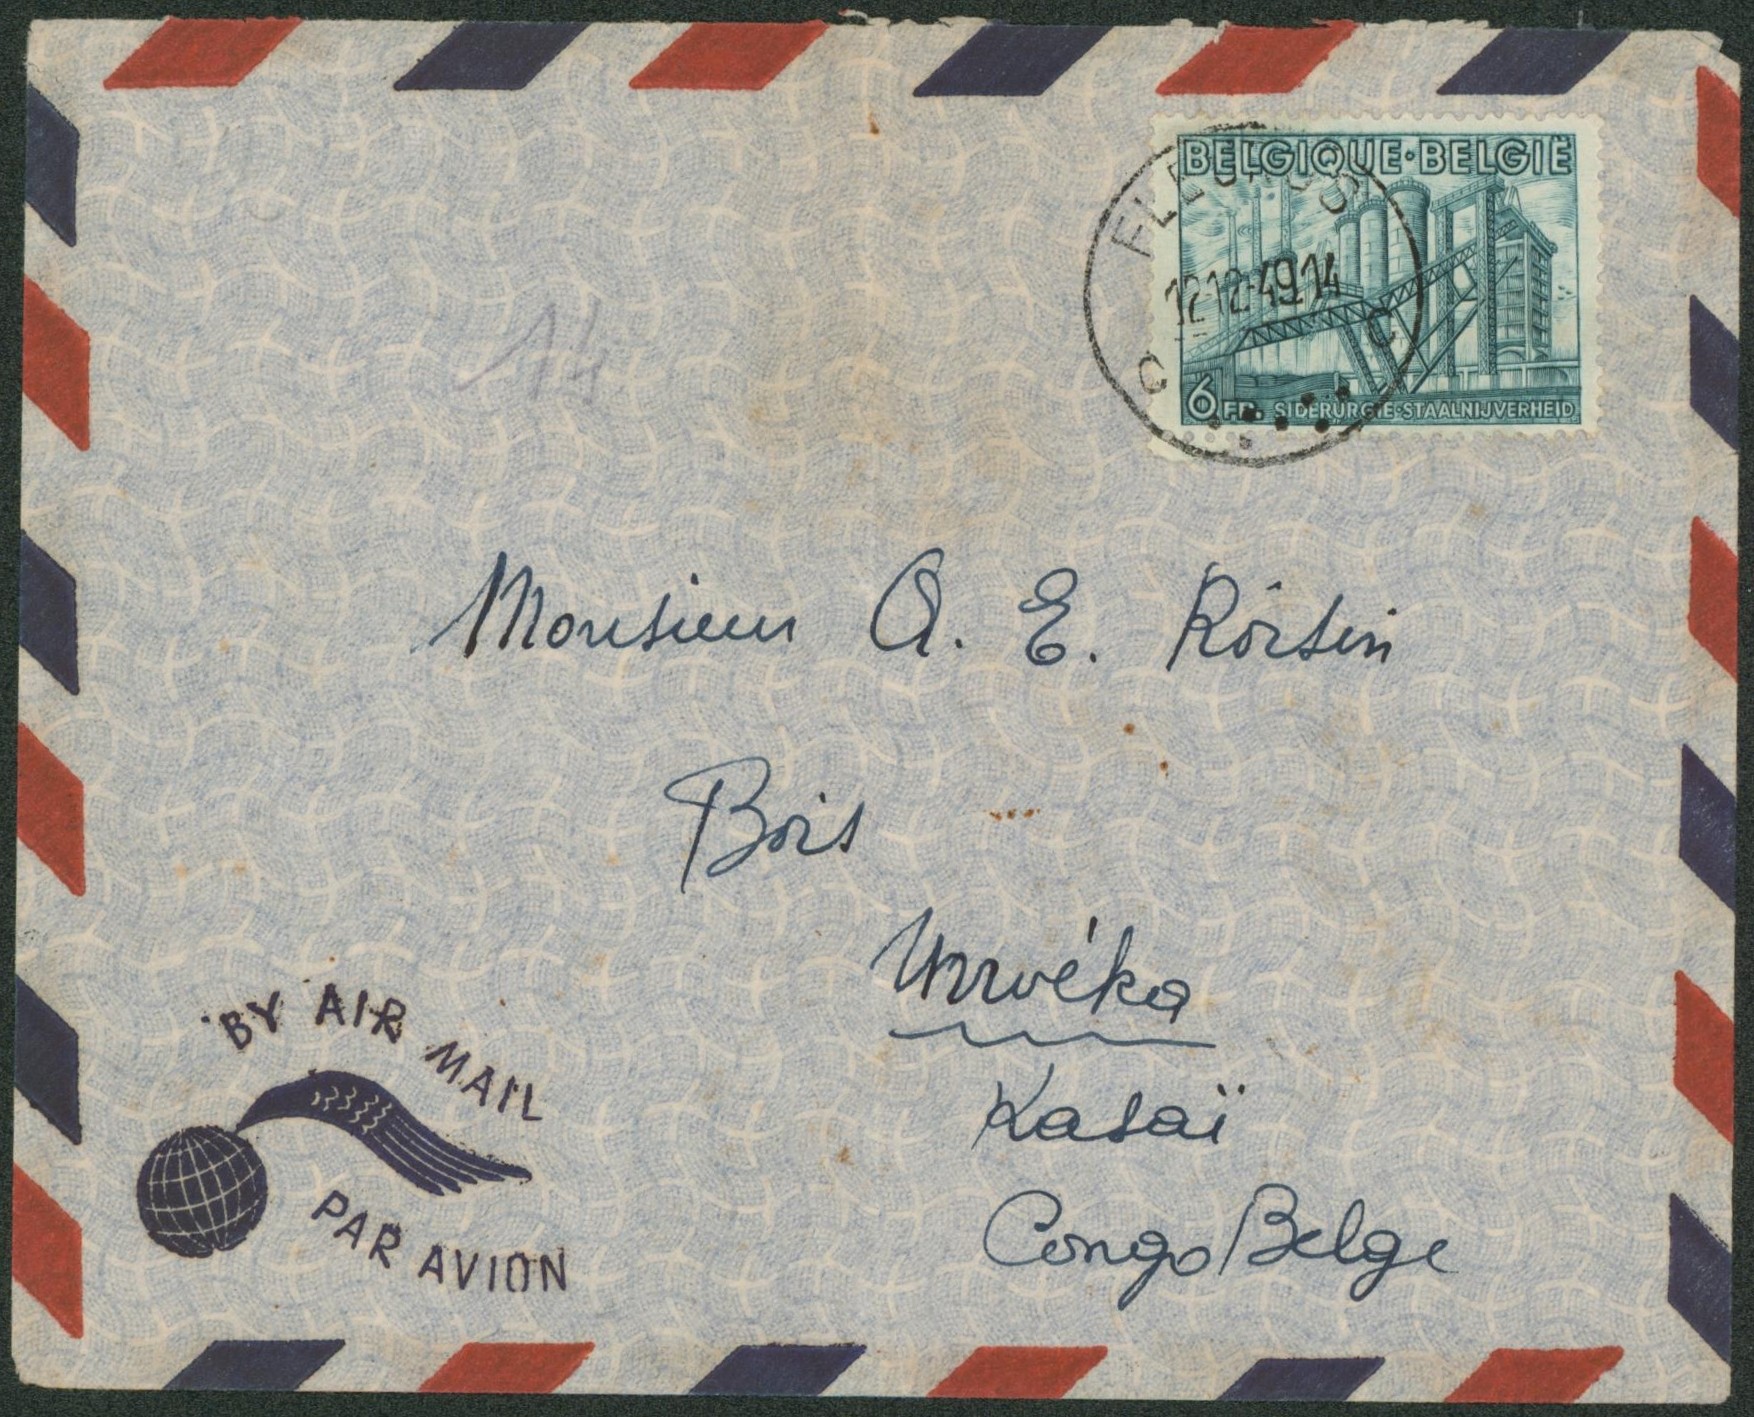 BELGIQUE·BELGIË
FLEURUS
12-12-49 14
C C
6 FR. SIDERURGIE-STAALNIJVERHEID
14
Monsieur A. E. Rorsin
Bois
Kasaï
Congo Belge
BY AIR MAIL
PAR AVION